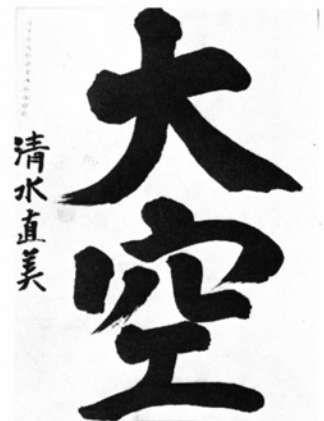 大空
清水直美